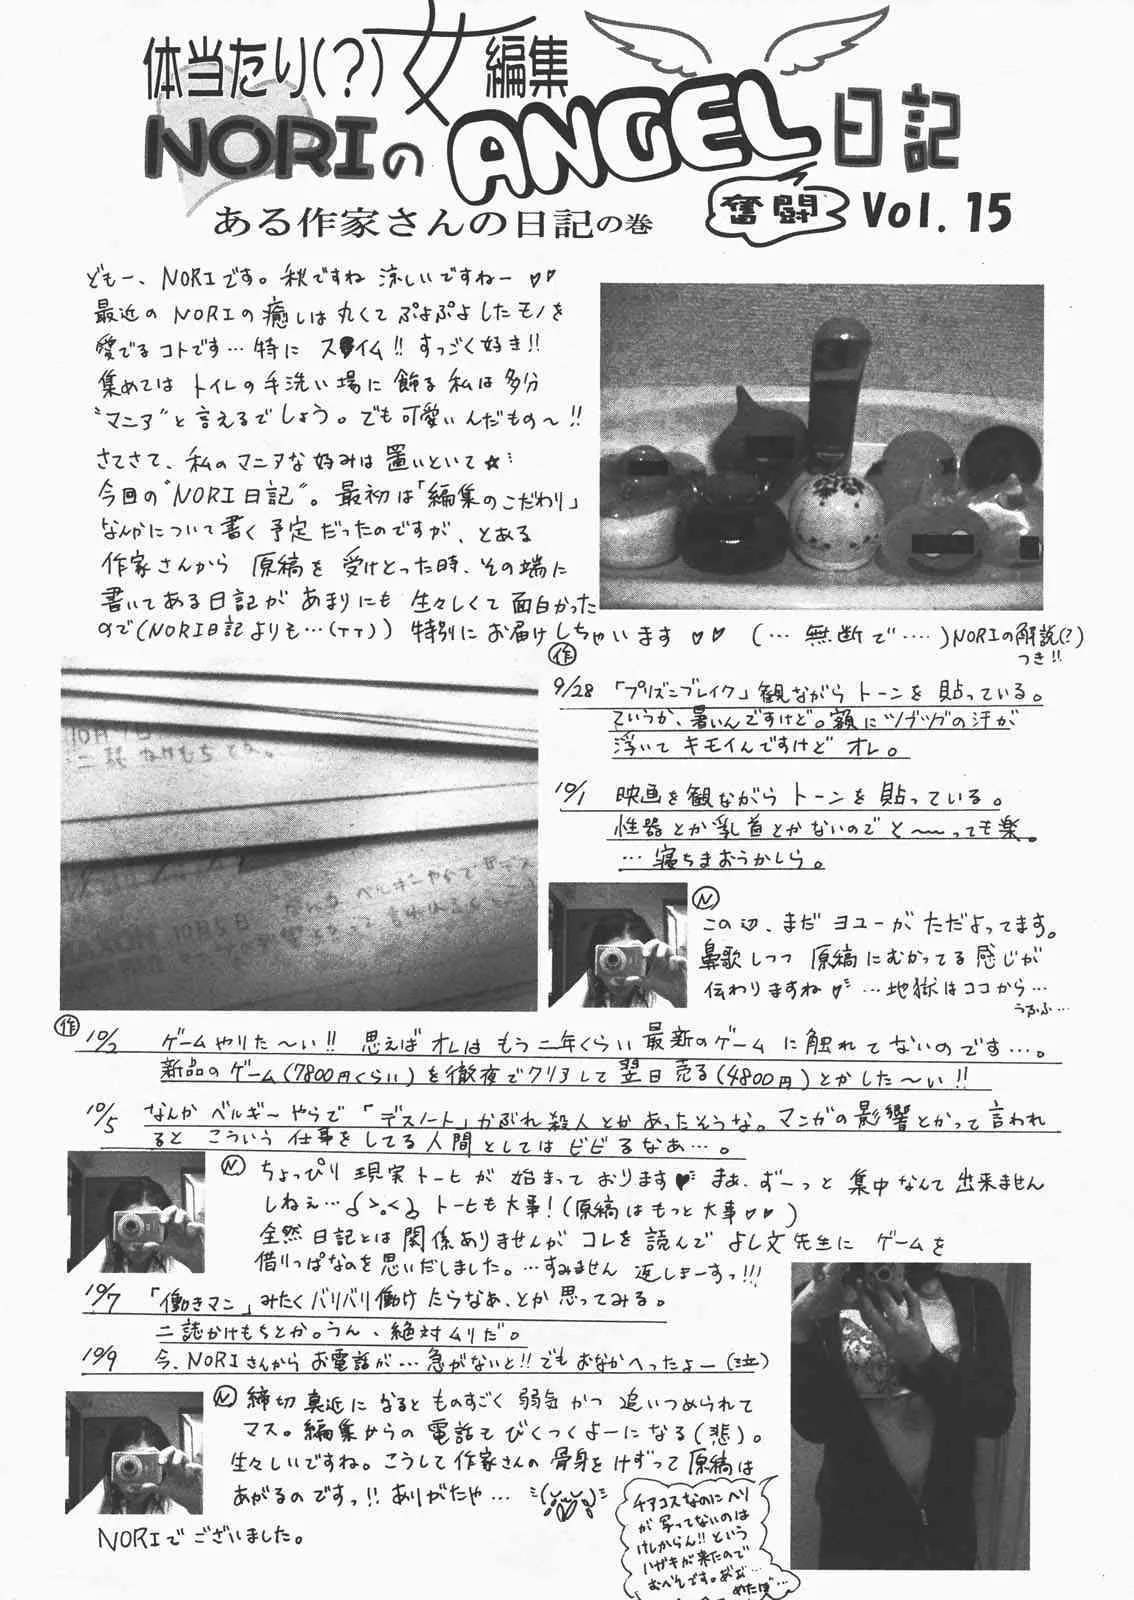 体当たり(?)女編集
NORIのANGEL日記
奮闘
Vol. 15
ある作家さんの日記の巻
どもー、NORIです。秋ですね 涼しいですねー♡♡
最近のNORIの癒しは丸くてぷよぷよしたモノを
愛でるコトです…特に ス●イム!! すっごく好き!!
集めては トイレの手洗い場に飾る私は多分
“マニア”と言えるでしょう。でも可愛いんだもの〜!!
さてさて、私のマニアな好みは置いといて☆
今回の“NORI日記”。最初は「編集のこだわり」
なんかについて書く予定だったのですが、とある
作家さんから 原稿を 受けとった時、その端に
書いてある日記が あまりにも 生々しくて面白かった
ので(NORI日記よりも…(TT)) 特別にお届けしちゃいます♡♡ (…無断で‥‥)NORIの解説(?)
つき!!
作
9/28 「プリズンブレイク」観ながらトーンを貼っている。
ていうか、暑いんですけど。額にツブツブの汗が
浮いてキモイんですけど オレ。
10/1 映画を観ながらトーンを貼っている。
性器とか乳首とかないのでと〜〜っても楽。
…寝ちまおうかしら。
10月7日
二誌かけもちとか。
10月5日 なんか ベルギーやらで「デス
N
この辺、まだヨユーがただよってます。
鼻歌しつつ 原稿にむかってる感じが
伝わりますね♡ …地獄はココから…
うふふ…
作
10/2 ゲームやりた〜い!! 思えばオレはもう二年くらい最新のゲームに触れてないのです…。
新品のゲーム(7800円くらい)を徹夜でクリアして翌日売る(4800円)とかした〜い!!
10/5 なんかベルギーやらで「デスノート」かぶれ殺人とかあったそうな。マンガの影響とかって言われ
ると こういう仕事をしてる人間としてはビビるなあ…。
N ちょっぴり現実トーヒが始まっております♡ まぁ、ずーっと集中なんて出来ません
しねぇ… トーヒも大事!(原稿はもっと大事♡♡)
全然日記とは関係ありませんがコレを読んでよし文先生にゲームを
借りっぱなのを思いだしました。…すみません 返しまーすっ!!!
10/7 「働きマン」みたくバリバリ働けたらなあ、とか思ってみる。
二誌かけもちとか。うん、絶対ムリだ。
10/9 今、NORIさんからお電話が…急がないと!!でもおなかへったよー(泣)
N 締切真近になるとものすごく弱気かつ追いつめられて
マス。編集からの電話でびくつくよーになる(悲)。
生々しいですね。こうして作家さんの骨身をけずって原稿は
あがるのですっ!! ありがたや…
NORIでございました。
チアコスなのにヘソ
が写ってないのは
けしからん!! という
ハガキが来たので
おへそです。
めたぼ…